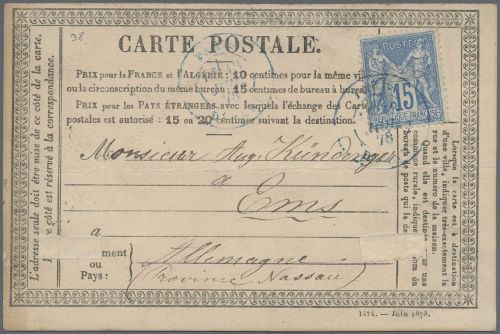 38
CARTE POSTALE.
PRIX pour la FRANCE et l'ALGÉRIE: 10 centimes pour la même vil
ou la circonscription du même bureau; 15 centimes de bureau à bureau.
PRIX pour les PAYS ÉTRANGERS avec lesquels l'échange des Cart
postales est autorisé : 15 ou 20 centimes suivant la destination.
POSTES
15
REPUBLIQUE FRANÇAISE
78
Monsieur Aug. Kündinger
a
Ems
a
ment
ou
Pays:
Allemagne
(Province Nassau)
L'adresse seule doit être mise de ce côté de la carte.
côté est réservé à la correspondance.
Lorsque la carte est à destination
d'une ville, indiquer très-exactement la
rue et le numéro de la maison.
Quand elle est destinée
commune rurale, indique
bureau de poste qui la de
1474. — Juin 1878.